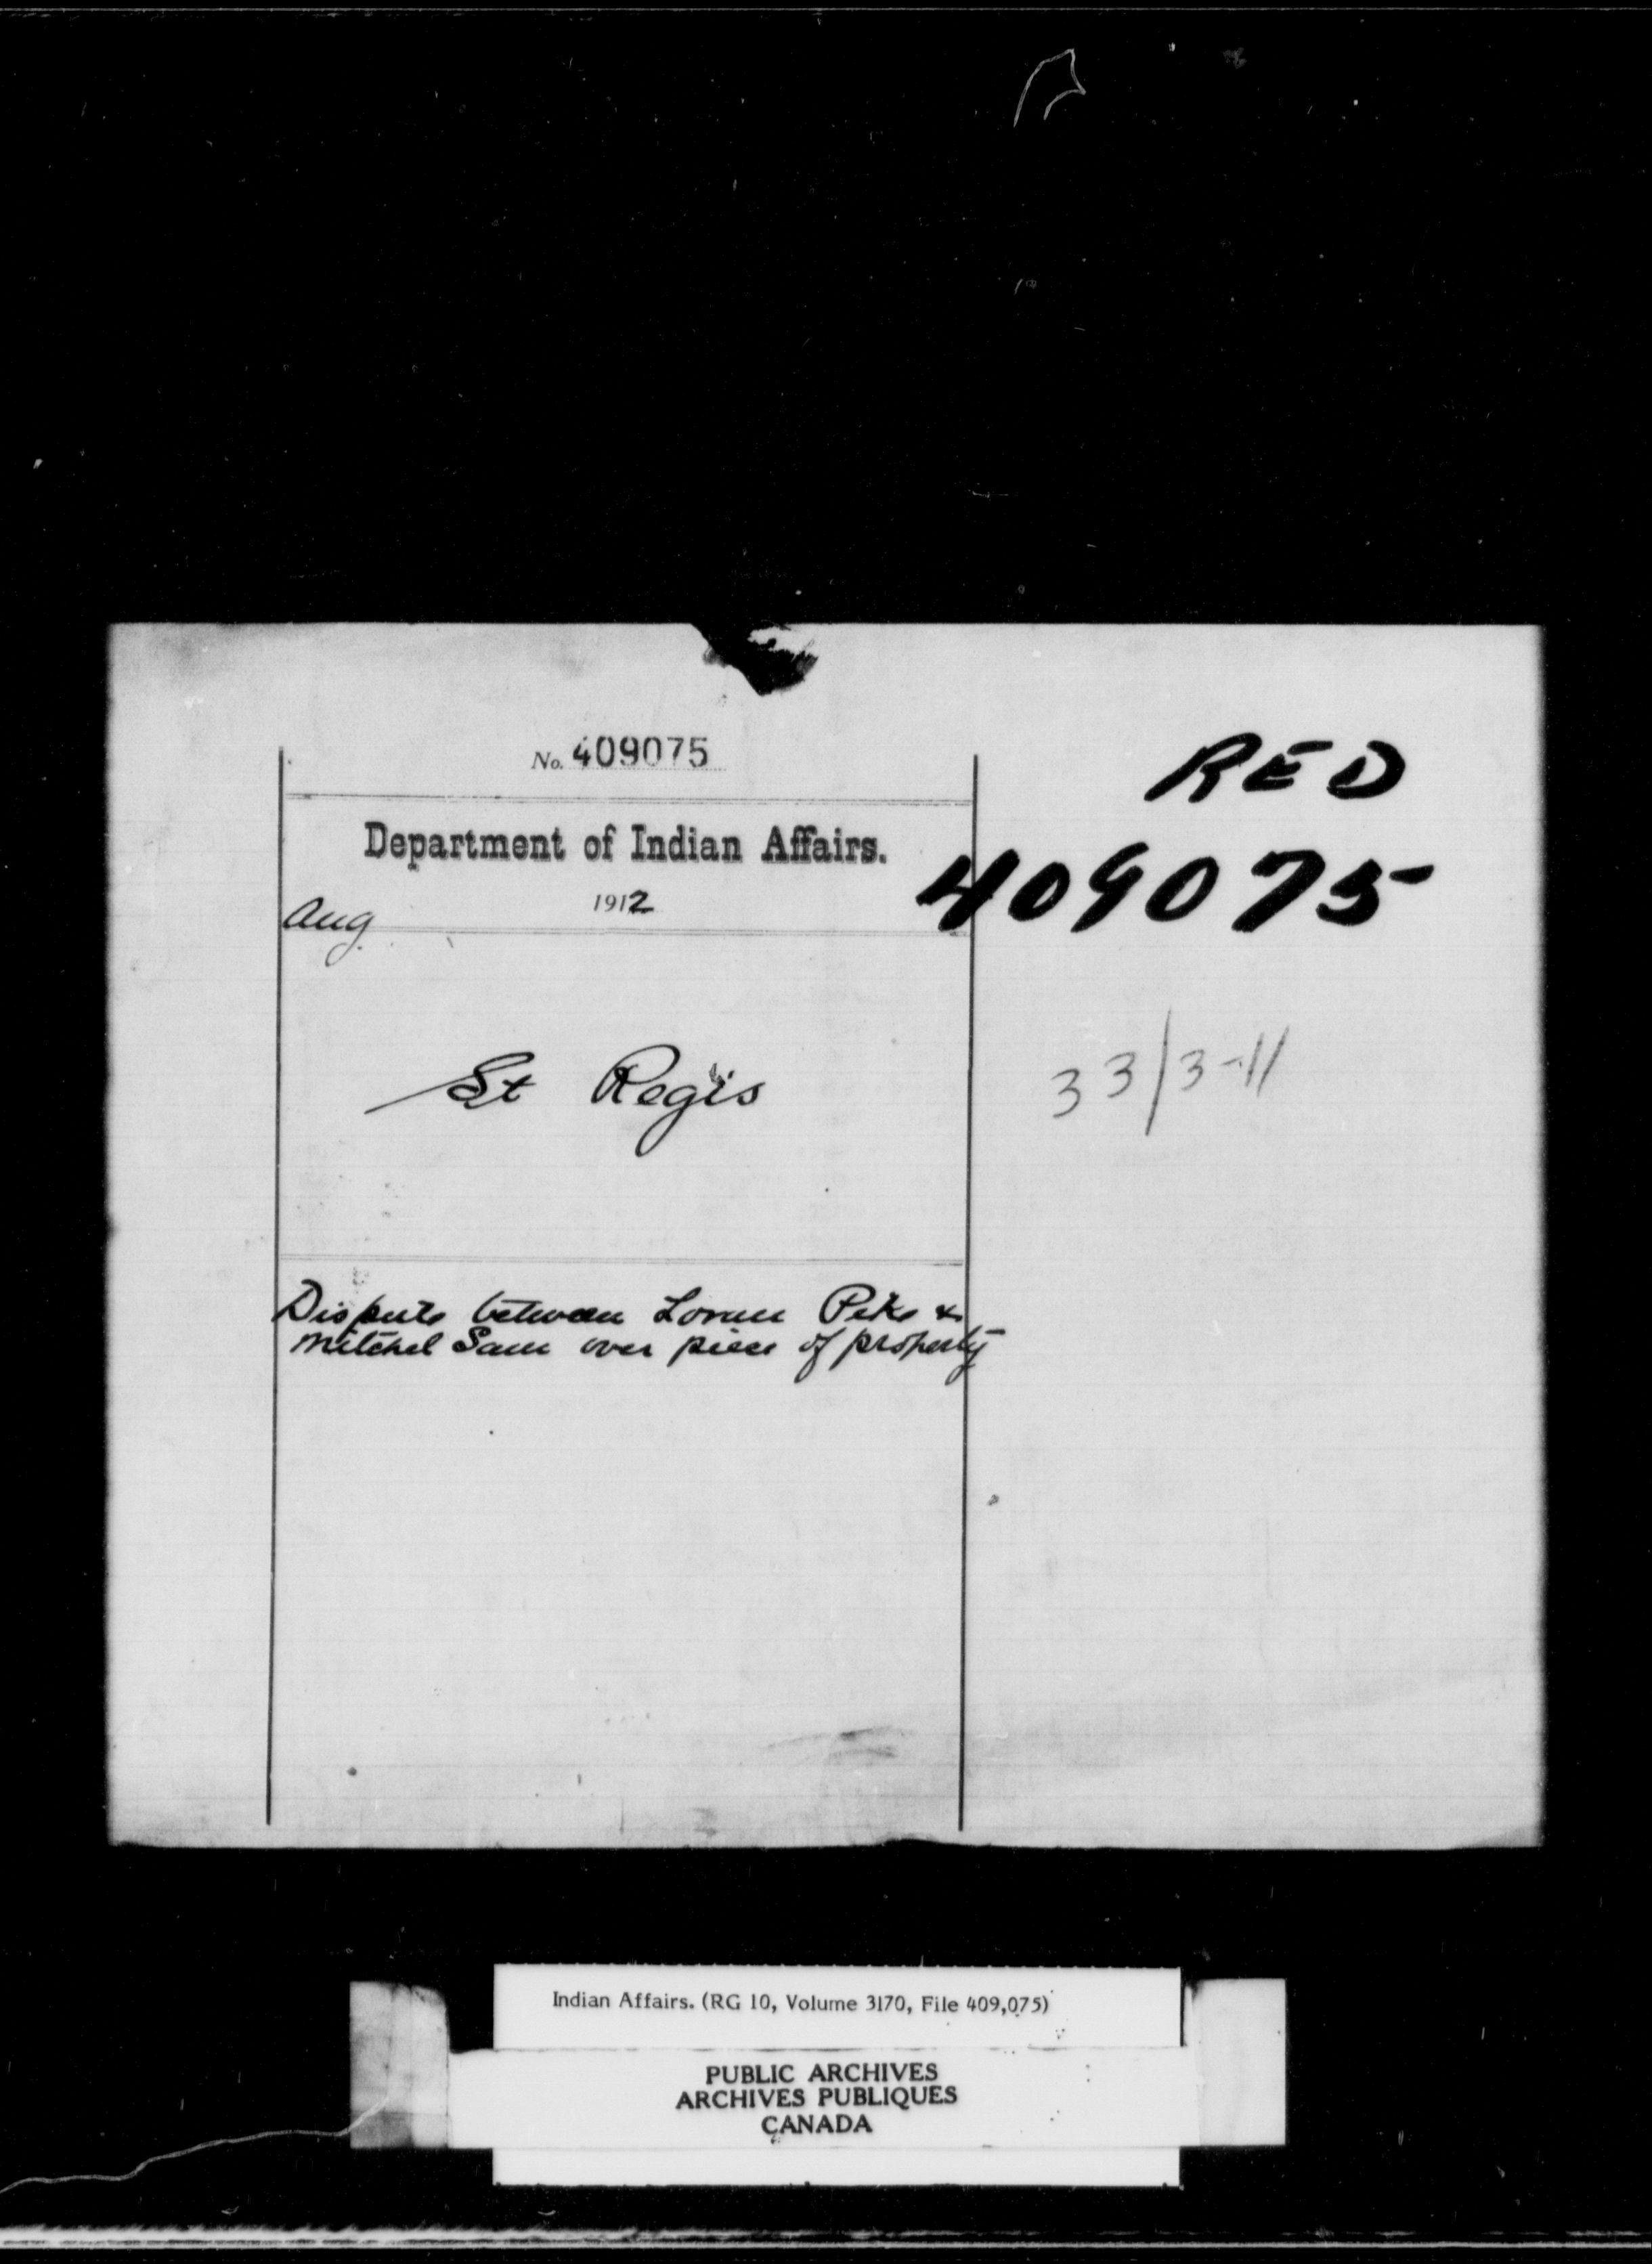 No. 409075
Department of Indian Affairs.
Aug 1912
St Regis
Dispute between Loran Pike &
Mitchel Sam over piece of property
RED
409075
33/3-11
Indian Affairs. (RG 10, Volume 3170, File 409,075)
PUBLIC ARCHIVES
ARCHIVES PUBLIQUES
CANADA